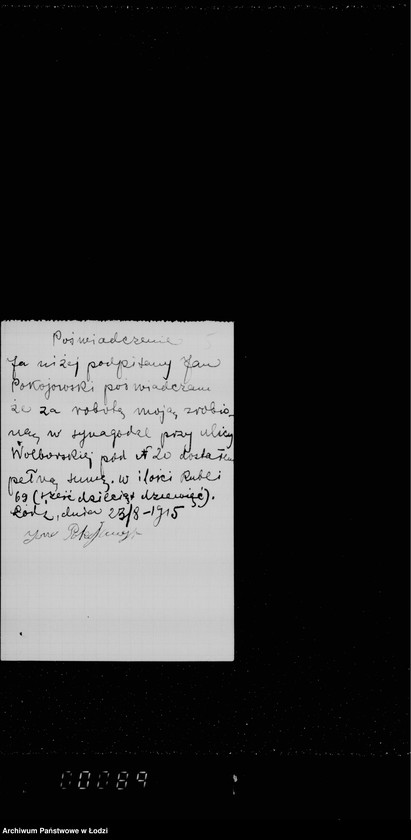 Poświadczenie
Ja niżej podpisany Jan
Pokojowski poświadczam
że za robotę moją zrobio-
ną w synagodze przy ulicy
Wolborskiej pod № 20 dostałem
pełną sumę, w ilości Rubli
69 (sześćdziesiąt dziewięć).
Łódź, dnia 23/8-1915
Jan
00089
Archiwum Państwowe w Łodzi